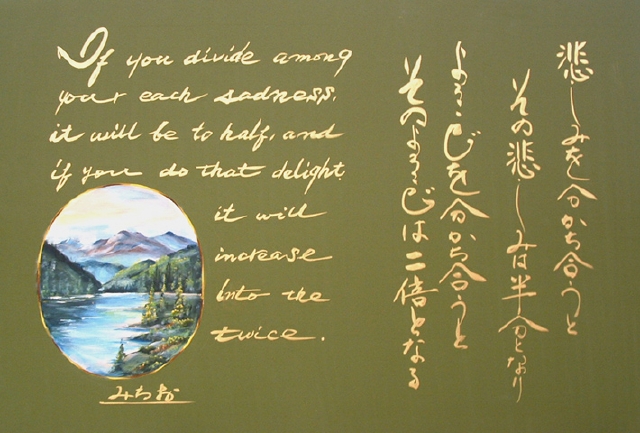 If you divide among
your each sadness.
it will be to half, and
if you do that delight
it will
increase
into the
twice.
悲しみを分かち合うと
その悲しみは半分となり
よろこびを分かち合うと
そのよろこびは二倍となる